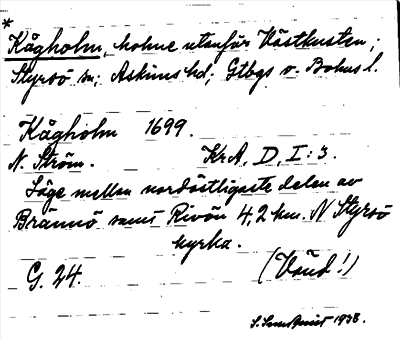 *
Kågholm, holme utanför Västkusten;
Styrsö sn; Askims hd; Gtbgs o. Bohus l.
Kågholm 1699.
N. Ström. KrA, D, I: 3.
Läge mellan nordöstligaste delen av
Brännö samt Rivön 4,2 km. N Styrsö
kyrka.
G. 24. (Vänd!)
1938.